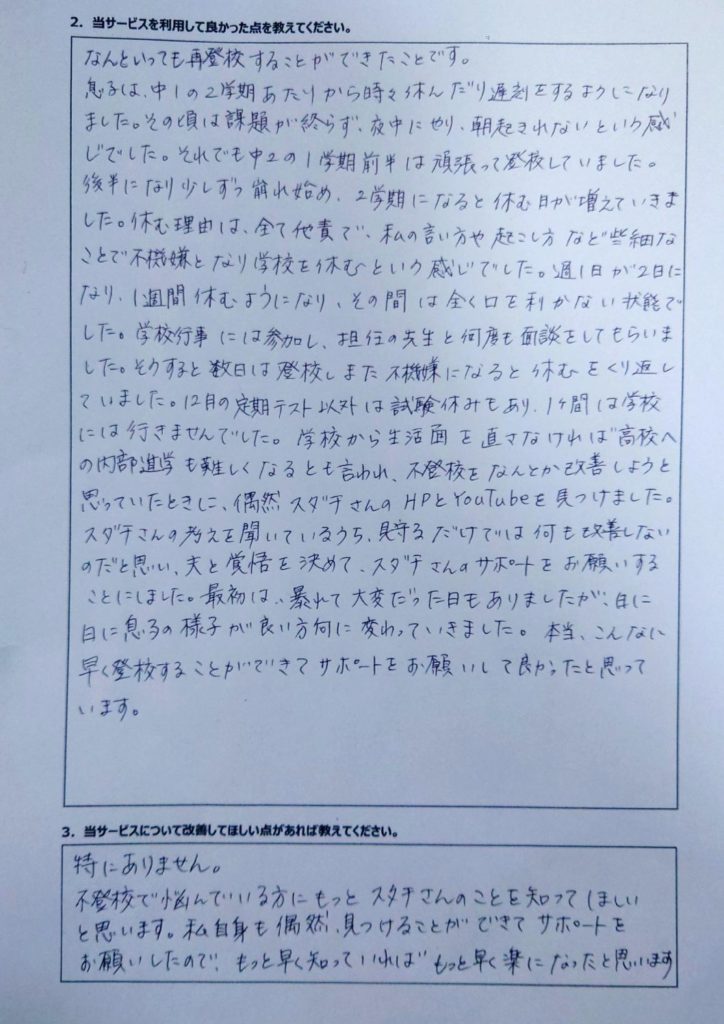 2. 当サービスを利用して良かった点を教えてください。
なんといっても再登校することができたことです。
息子は、中1の2学期あたりから時々休んだり遅刻をするようになり
ました。その頃は課題が終らず、夜中にやり、朝起きれないという感
じでした。それでも中2の1学期前半は頑張って登校していました。
後半になり少しずつ崩れ始め、2学期になると休む日が増えていきま
した。休む理由は、全て他責で、私の言い方や起こし方など些細な
ことで不機嫌となり学校を休むという感じでした。週1日が2日に
なり、1週間休むようになり、その間は全く口を利かない状態で
した。学校行事には参加し、担任の先生と何度も面談をしてもらいま
した。そうすると数日は登校しまた不機嫌になると休むをくり返し
ていました。12月の定期テスト以外は試験休みもあり、1ヶ間は学校
には行きませんでした。学校から生活面を直さなければ高校へ
の内部進学も難しくなるとも言われ、不登校をなんとか改善しようと
思っていたときに、偶然スダチさんのHPとYouTubeを見つけました。
スダチさんの考えを聞いているうち、見守るだけでは何も改善しない
のだと思い、夫と覚悟を決めて、スダチさんのサポートをお願いする
ことにしました。最初は、暴れて大変だった日もありましたが、日に
日に息子の様子が良い方向に変わっていきました。本当、こんなに
早く登校することができてサポートをお願いして良かったと思って
います。
3. 当サービスについて改善してほしい点があれば教えてください。
特にありません。
不登校で悩んでいる方にもっとスダチさんのことを知ってほしい
と思います。私自身も偶然、見つけることができてサポートを
お願いしたので、もっと早く知っていればもっと早く楽になったと思います